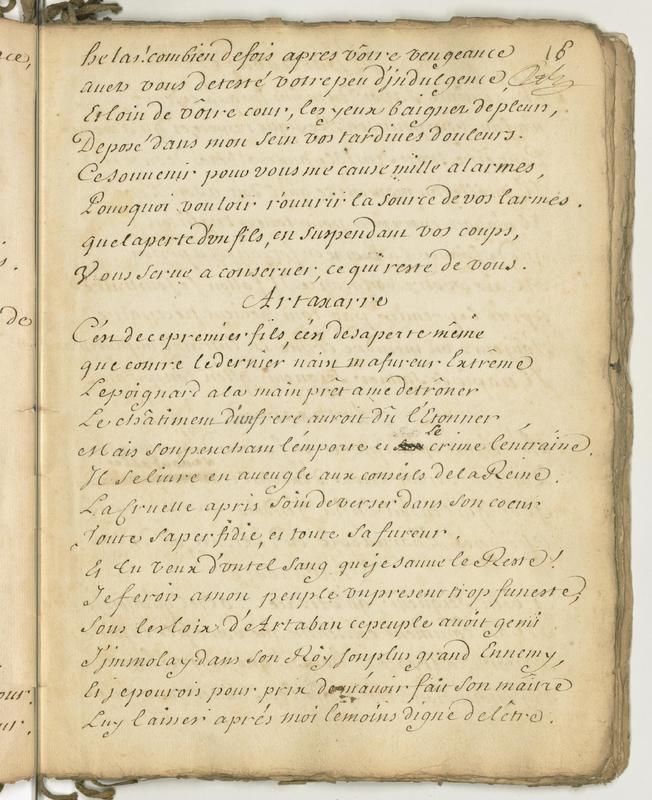 16
helas! combien de fois apres vôtre vengeance
avez vous detesté votre peu d'indulgence,
Et loin de vôtre cour, les yeux baignez de pleurs,
Deposé dans mon sein vos tardives douleurs.
Ce souvenir pour vous me cause mille alarmes,
Pourquoi vouloir r'ouvrir la source de vos larmes.
que la perte d'vn fils, en suspendant vos coups,
Vous serue a conseruer, ce qui reste de vous.
Artaxarre
C'en de ce premier fils, c'en de sa perte même
que contre le dernier nain ma fureur Extrême
Le poignard a la main prêt a me detrôner
Le châtiment d'un frere auroit dû l'Etonner
Mais son penchant l'emporte et le crime l'entraine.
Il se livre en aveugle aux conseils de la Reine.
La Cruelle a pris soin de verser dans son coeur
Toute sa perfidie, et toute sa fureur.
Et tu veux d'vn tel sang que je sauve le Reste!
Je ferois a mon peuple vn present trop funeste;
Sous les loix d'Artaban ce peuple avoit gemi
J'immolay dans son Roy son plus grand Ennemy,
Et je pourois pour prix de m'avoir fait son maître
Luy laisser aprés moi le moins digne de l'être.